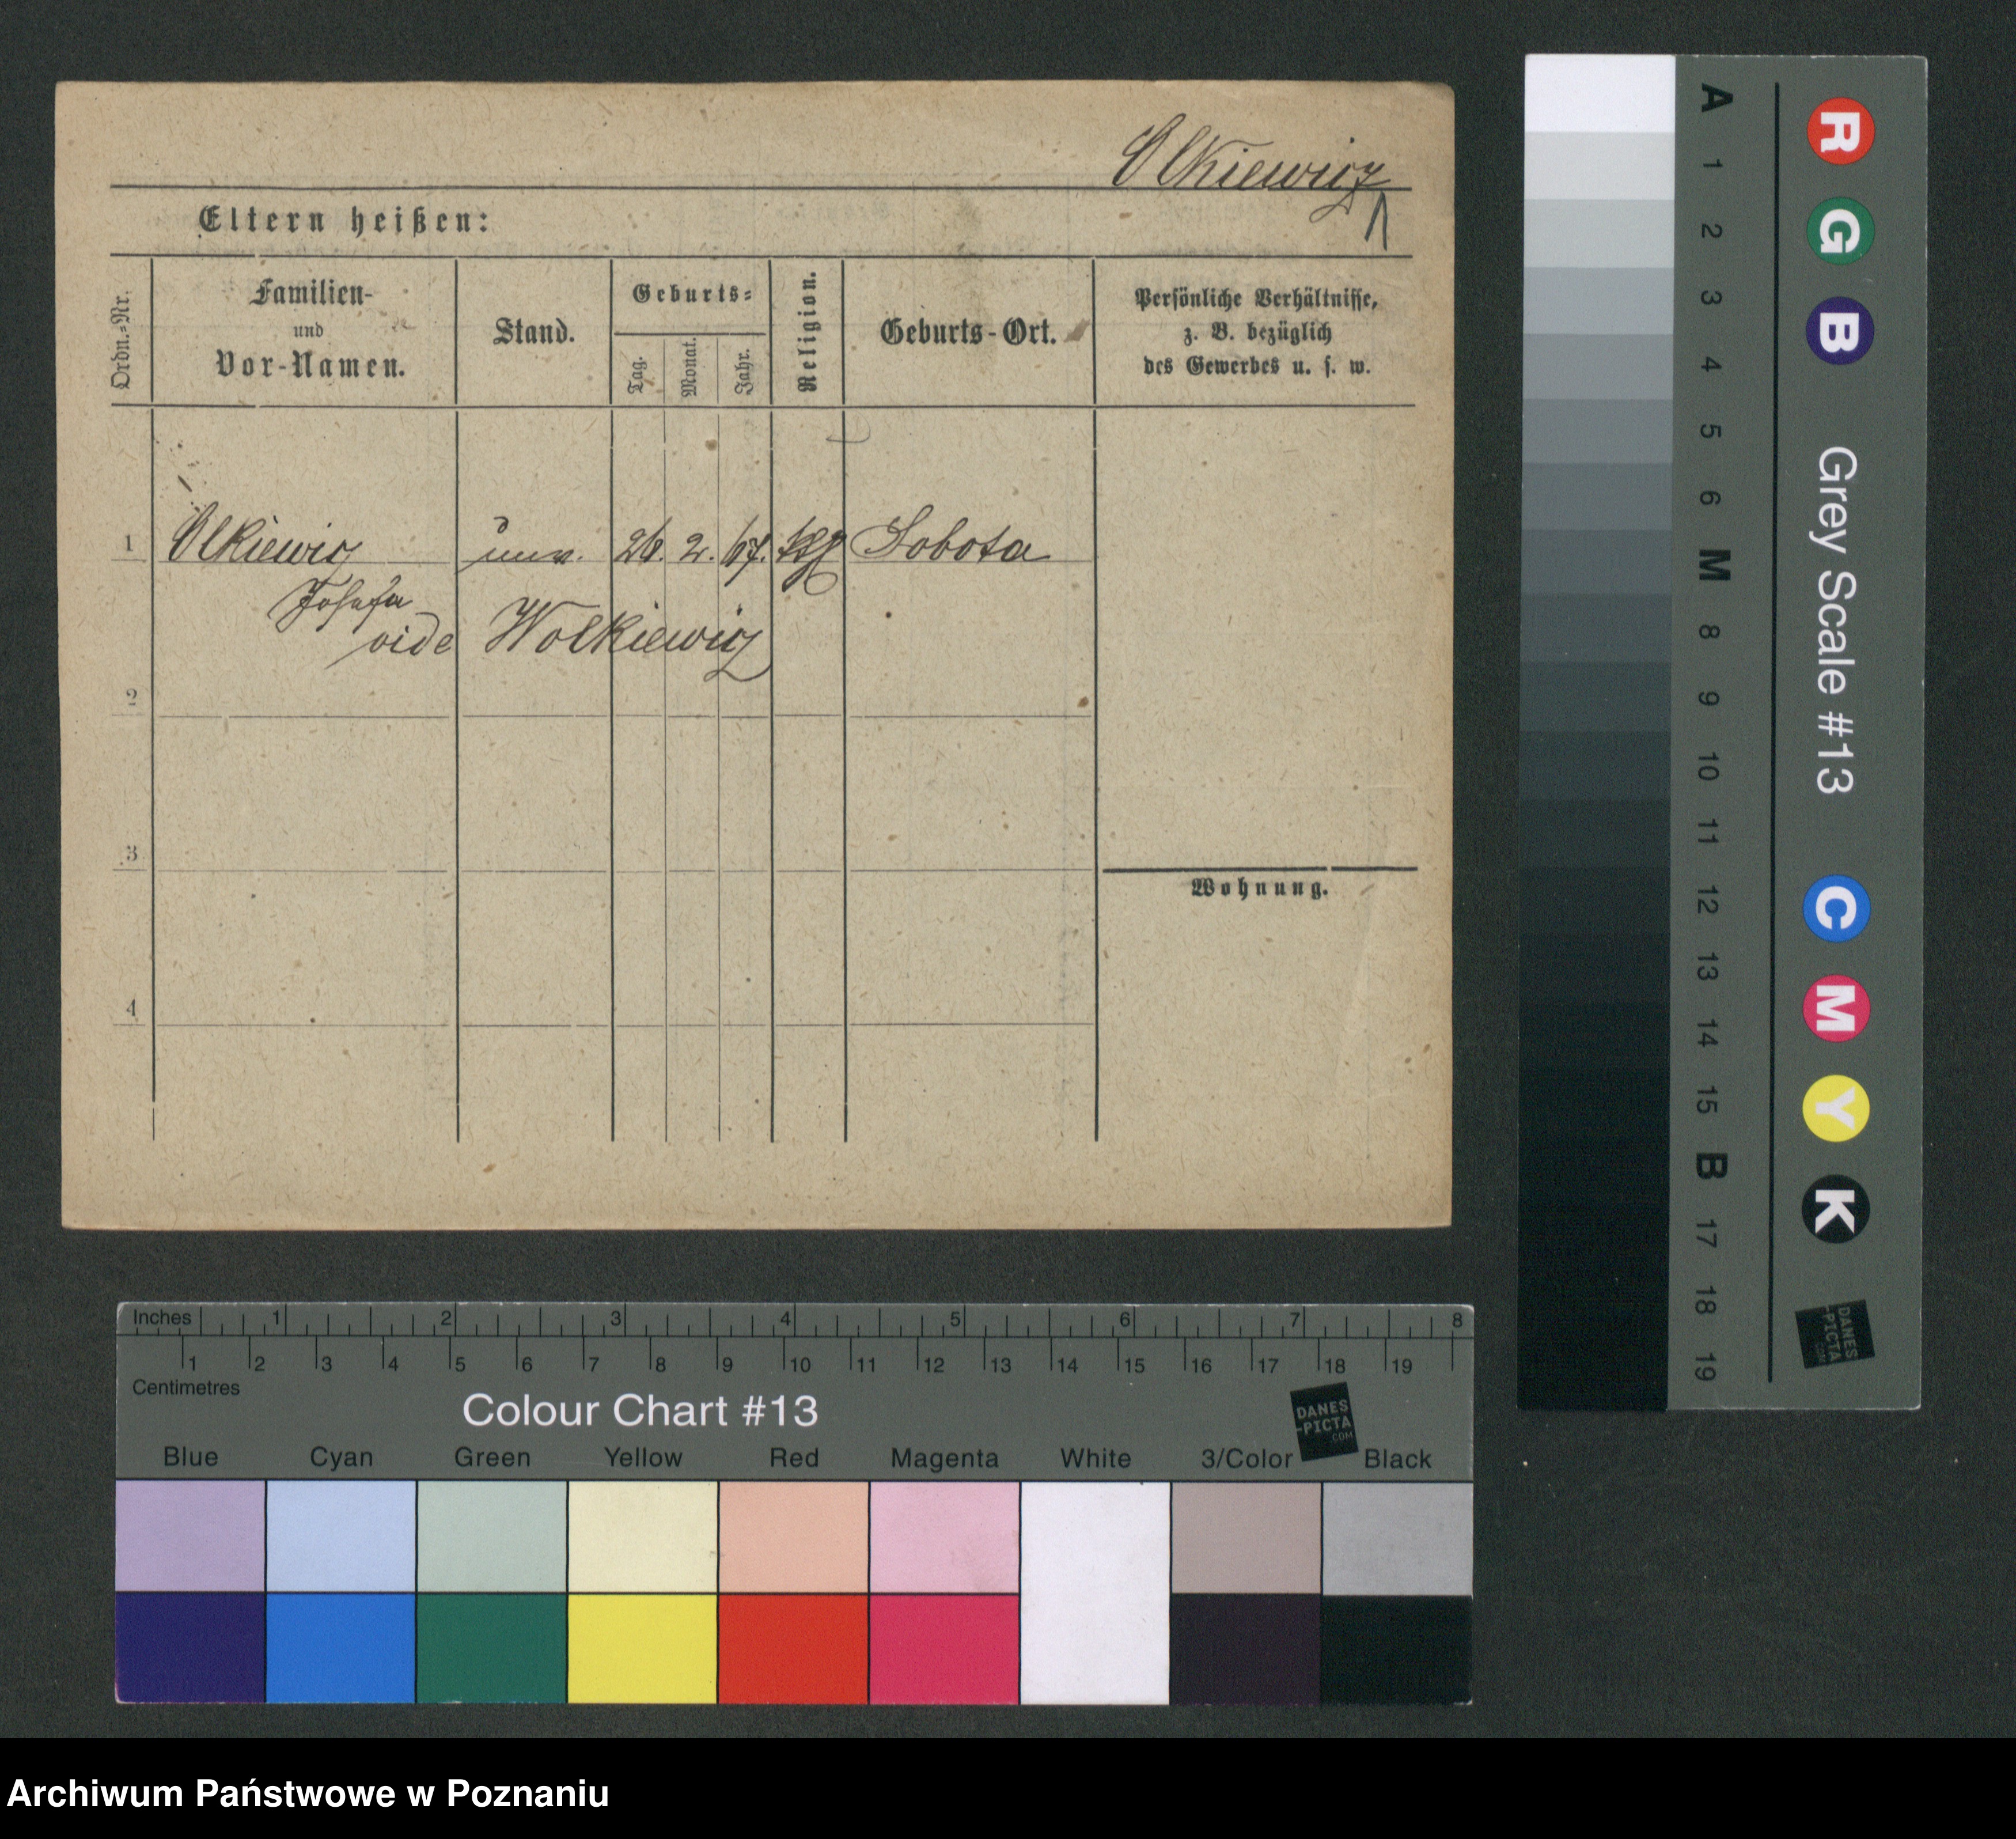 Olkiewicz
1
Eltern heißen:
Ordn.-Nr.
Familien-
und
Vor-Namen.
Stand.
Geburts-
Tag.
Monat.
Jahr.
Religion.
Geburts-Ort.
Persönliche Verhältnisse,
z. B. bezüglich
des Gewerbes u. s. w.
1 Olkiewicz unv. 26. 2. 67. Sobota
Josefa
vide Wolkiewicz
2
3
Wohnung.
4
A 1 2 3 4 5 6 M 8 9 10 11 12 13 14 15 B 17 18 19
R G B Grey Scale #13 C M Y K
DANES
-PICTA
.COM
Inches 1 2 3 4 5 6 7 8
1 2 3 4 5 6 7 8 9 10 11 12 13 14 15 16 17 18 19
Centimetres
Colour Chart #13
DANES
-PICTA
.COM
Blue Cyan Green Yellow Red Magenta White 3/Color Black
Archiwum Państwowe w Poznaniu